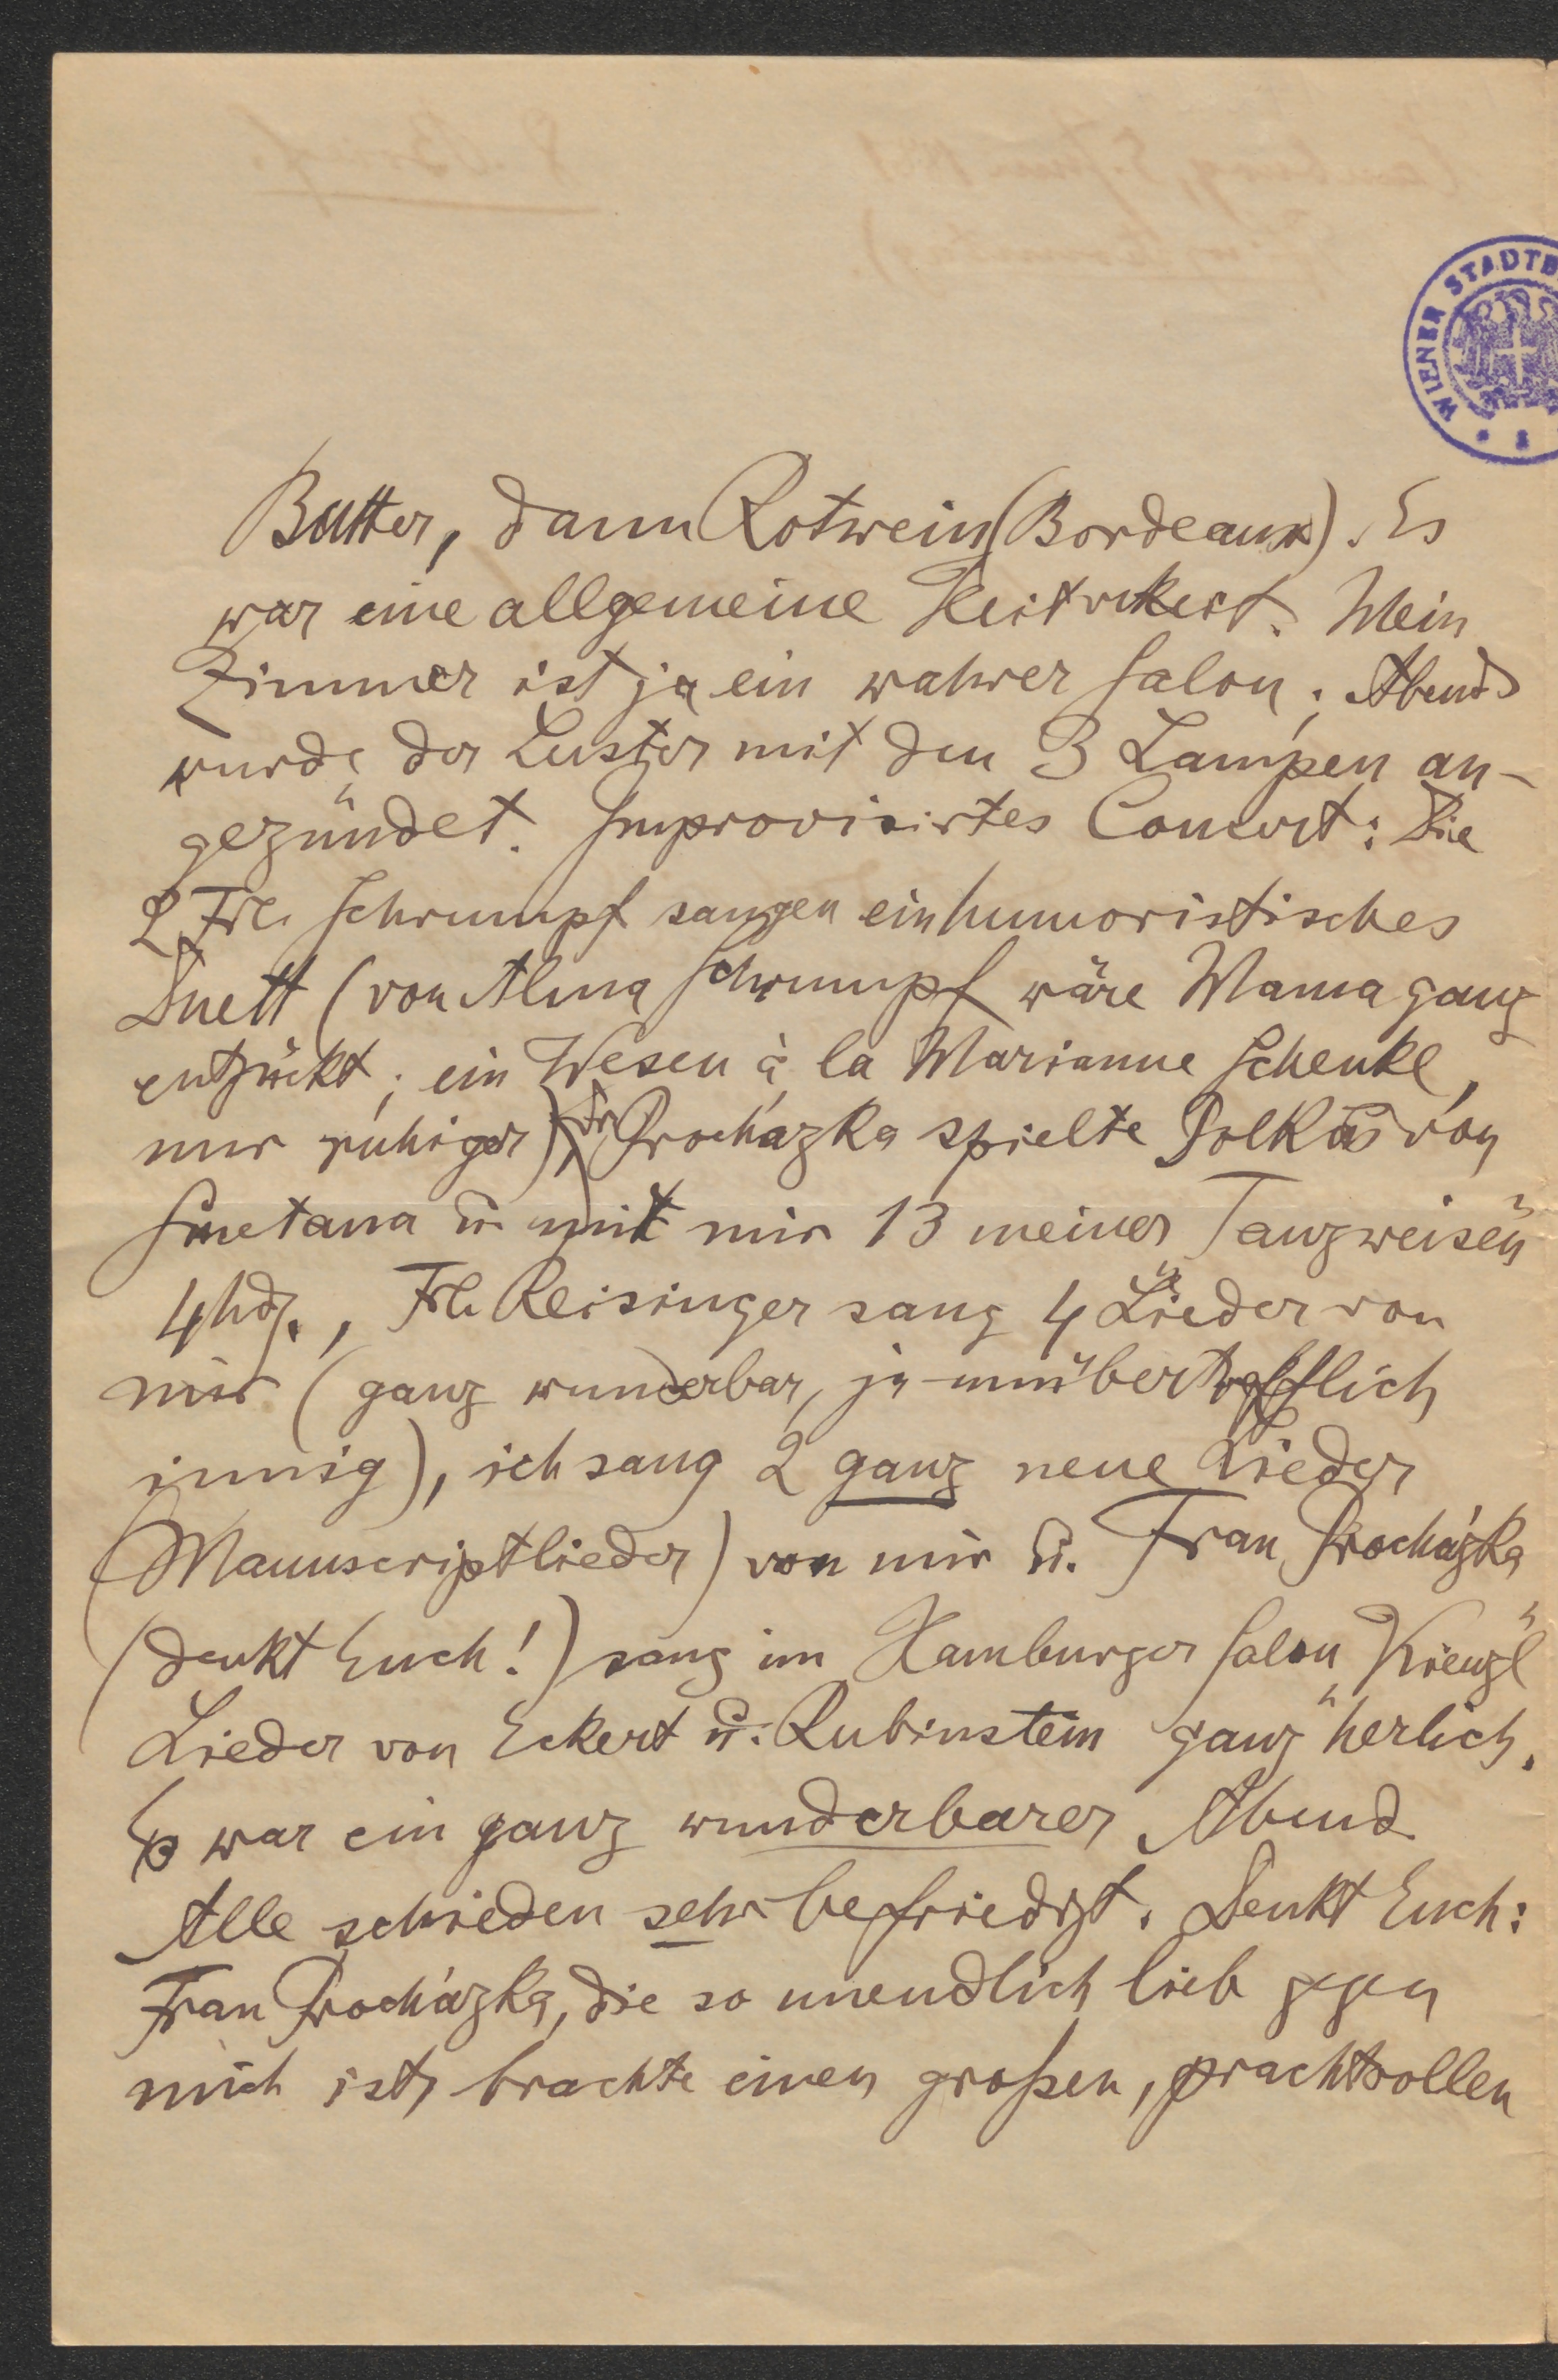 WIENER STADTB
Butter, dann Rotwein (Bordeaux). Es
war eine allgemeine Heiterkeit. Mein
Zimmer ist ja ein wahrer Salon; Abends
wurde der Luster mit den 3 Lampen an-
gezündet. Improvisirtes Concert: Die
2 Frl. Schrumpf sangen ein humoristisches
Duett (von Alma Schrumpf wäre Mama ganz
entzückt; ein Wesen à la Marianne Schenkl,
nur ruhiger), Dr Procházka spielte Polkas von
Smetana u. mit mir 13 meiner Tanzweisen
4hdg., Frl. Reisinger sang 4 Lieder von
mir (ganz wunderbar, ja unübertrefflich
innig), ich sang 2 ganz neue Lieder
(Manuscriptlieder) von mir u. Frau Procházka
(denkt Euch!) sang im Hamburger Salon „Kienzl“
Lieder von Eckert u. Rubinstein ganz herlich.
Es war ein ganz wunderbarer Abend
Alle schieden sehr befriedigt. Denkt Euch:
Frau Procházka, die so unendlich lieb gegen
mich ist, brachte einen großen, prachtvollen